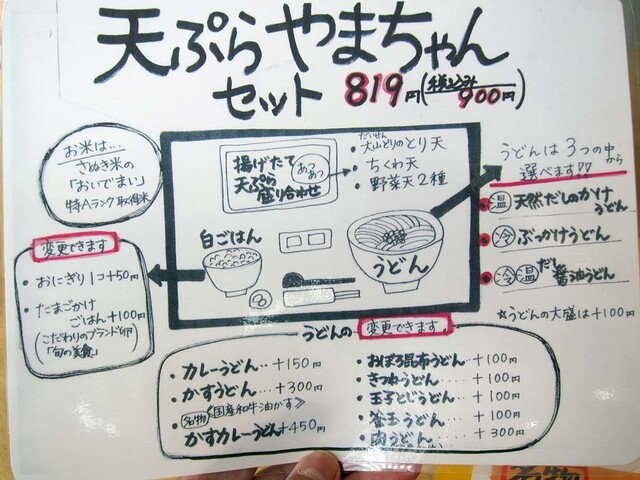 天ぷらやまちゃん
セット 819円(税込み900円)
お米は…
さぬき米の
「おいでまい」
特Aランク取得米
揚げたて
天ぷら
盛り合わせ
あつあつ
だいせん
・大山どりのとり天
・ちくわ天
・野菜天2種
白ごはん
うどん
うどんは3つの中から
選べます!!
温 天然だしのかけ
うどん
冷 ぶっかけうどん
冷 温 だし醤油うどん
☆うどんの大盛は+100円
変更できます
・おにぎり1コ+50円
・たまごかけ
ごはん+100円
(こだわりのブランド卵
「旬の美食」)
うどんの変更できます。
・カレーうどん…+150円
・かすうどん…+300円
名物《国産和牛油かす》
かすカレーうどん+450円
・おぼろ昆布うどん…+100円
・きつねうどん…+100円
・玉子とじうどん…+100円
・釜玉うどん…+100円
・肉うどん…+300円
名物